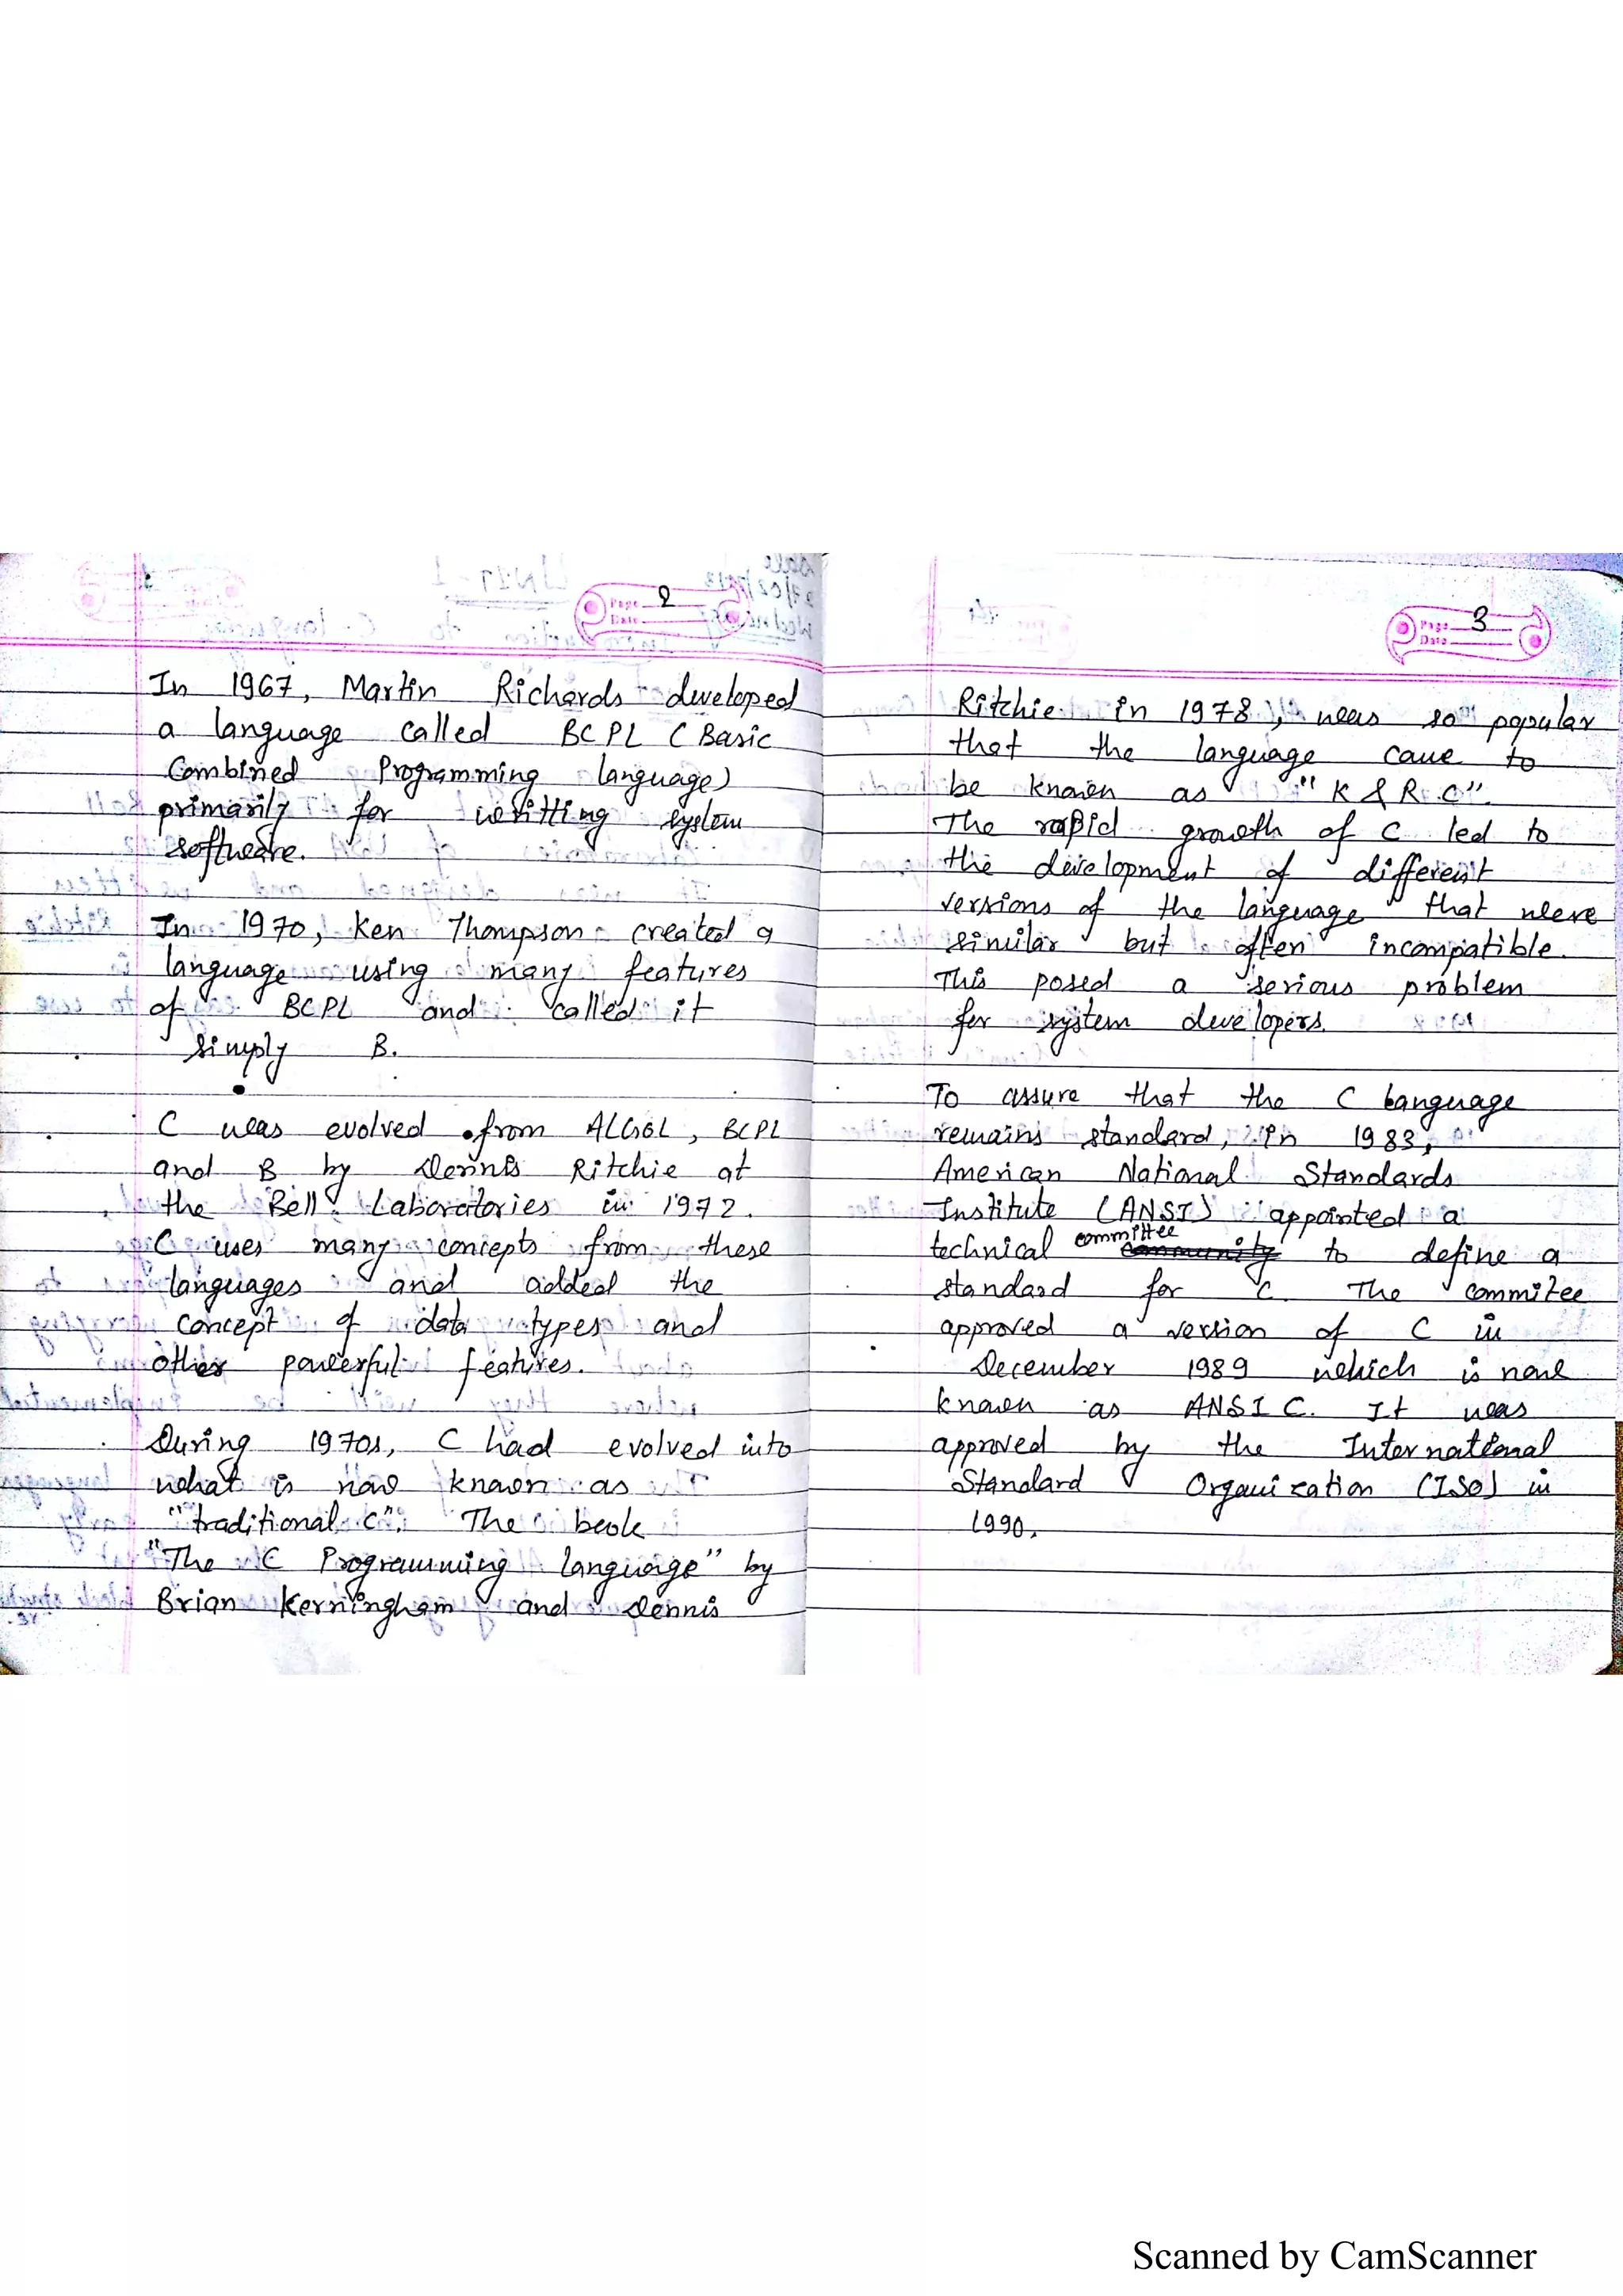 Page 2
Date
In 1967, Martin Richards developed
a language called BCPL (Basic
Combined Programming language)
primarily for writting system
software.
In 1970, Ken Thompson created a
language using many features
of BCPL and called it
simply B.
C was evolved from ALGOL, BCPL
and B by Dennis Ritchie at
the Bell Laboratories in 1972.
C uses many concepts from these
languages and added the
concept of data types and
other powerful features.
During 1970s, C had evolved into
what is now known as
"traditional C". The book
"The C Programming language" by
Brian Kerningham and Dennis
Page 3
Date
Ritchie in 1978, was so popular
that the language came to
be known as "K & R C".
The rapid growth of C led to
the development of different
versions of the language that were
similar but often incompatible.
This posed a serious problem
for system developers.
To assure that the C language
remains standard, in 1983,
American National Standards
Institute (ANSI) appointed a
technical committee to define a
standard for C. The commitee
approved a version of C in
December 1989 which is now
known as ANSI C. It was
approved by the International
Standard Organization (ISO) in
1990.
Scanned by CamScanner